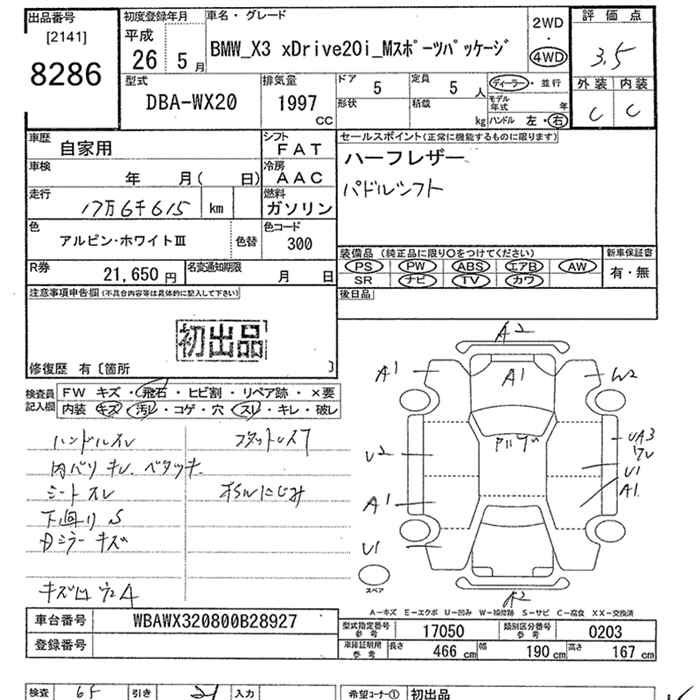 出品番号
[2141]
8286
初度登録年月
平成
26 5月
車名・グレード
BMW_X3 xDrive20i_Mスポーツパッケージ
2WD
・
4WD
評価点
3.5
外装 内装
C C
型式
DBA-WX20
排気量
1997
CC
ドア
5
定員
5人
形状
積載
kg
ディーラー・並行
モデル年式 年
ハンドル 左・右
車歴
自家用
シフト
FAT
車検
年 月( 日)
冷房
AAC
走行
17万6千615 km
燃料
ガソリン
色
アルピン・ホワイトⅢ
色替
色コード
300
R券
21,650円
名変通知期限
月 日
セールスポイント(正常に機能するものに限ります)
ハーフレザー
パドルシフト
装備品(純正品に限り○をつけてください)
PS PW ABS エアB AW
SR ナビ TV カワ
新車保証書
有・無
後日品
注意事項申告欄(不具合内容等は具体的に記入して下さい)
初出品
修復歴 有〔箇所 〕
検査員
記入欄
FW キズ・飛石・ヒビ割・リペア跡・×要
内装 キズ・汚レ・コゲ・穴・スレ・キレ・破レ
ハンドルスレ
内バリ キレ ベタツキ
シートスレ
下廻り S
Dミラーキズ
オイルにじみ
A2
A1
A1
W2
U2
UA3
U1
A1
A1
U1
A2
スペア
A－キズ E－エクボ U－凹み W－補修跡 S－サビ C－腐食 XX－交換済
車台番号
WBAWX320800B28927
登録番号
型式指定番号
参考
17050
類別区分番号
参考
0203
車庫証明用
参考
長さ
466 cm
幅
190 cm
高さ
167 cm
検査
65
引き
21
入力
希望コーナー①
初出品